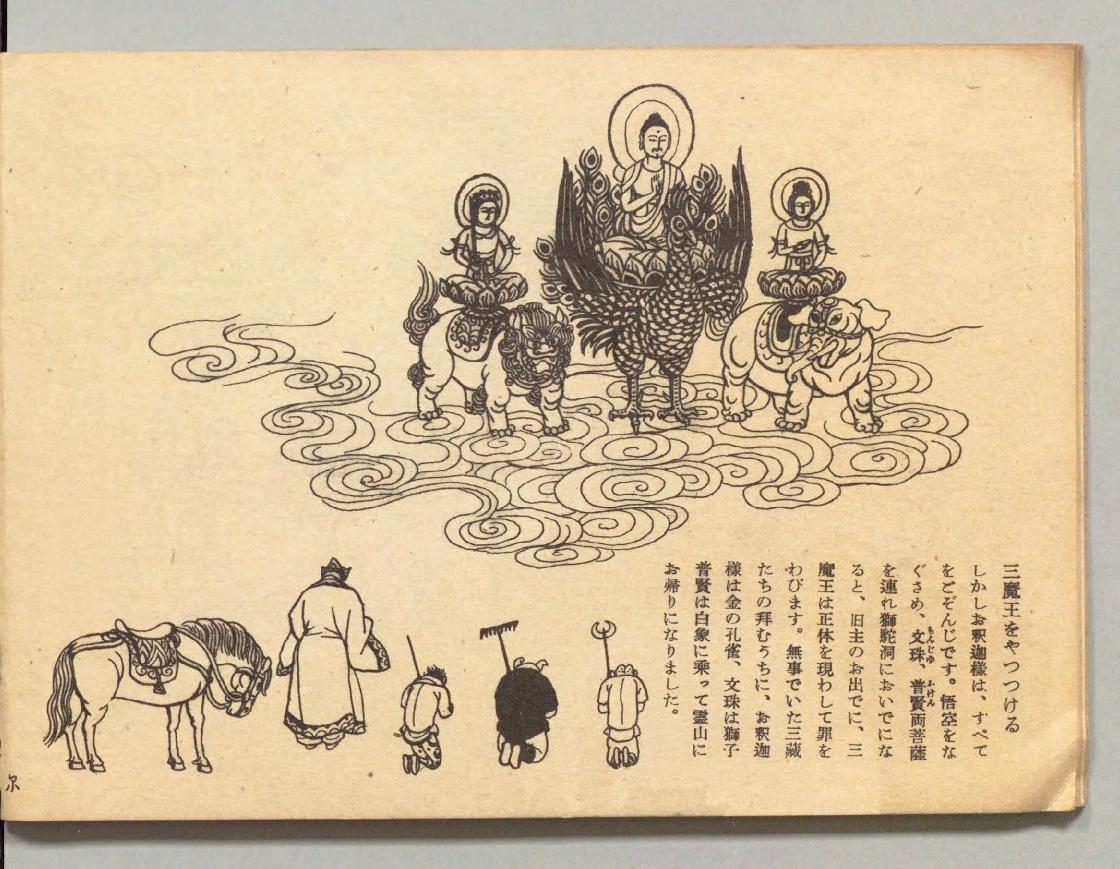 三魔王をやつつける
しかしお釈迦様は、すべて
をごぞんじです。悟空をな
ぐさめ、文珠、普賢両菩薩
もんじゆ ふけん
を連れ獅駝洞においでにな
ると、旧主のお出でに、三
魔王は正体を現わして罪を
わびます。無事でいた三蔵
たちの拝むうちに、お釈迦
様は金の孔雀、文珠は獅子
普賢は白象に乗って霊山に
お帰りになりました。